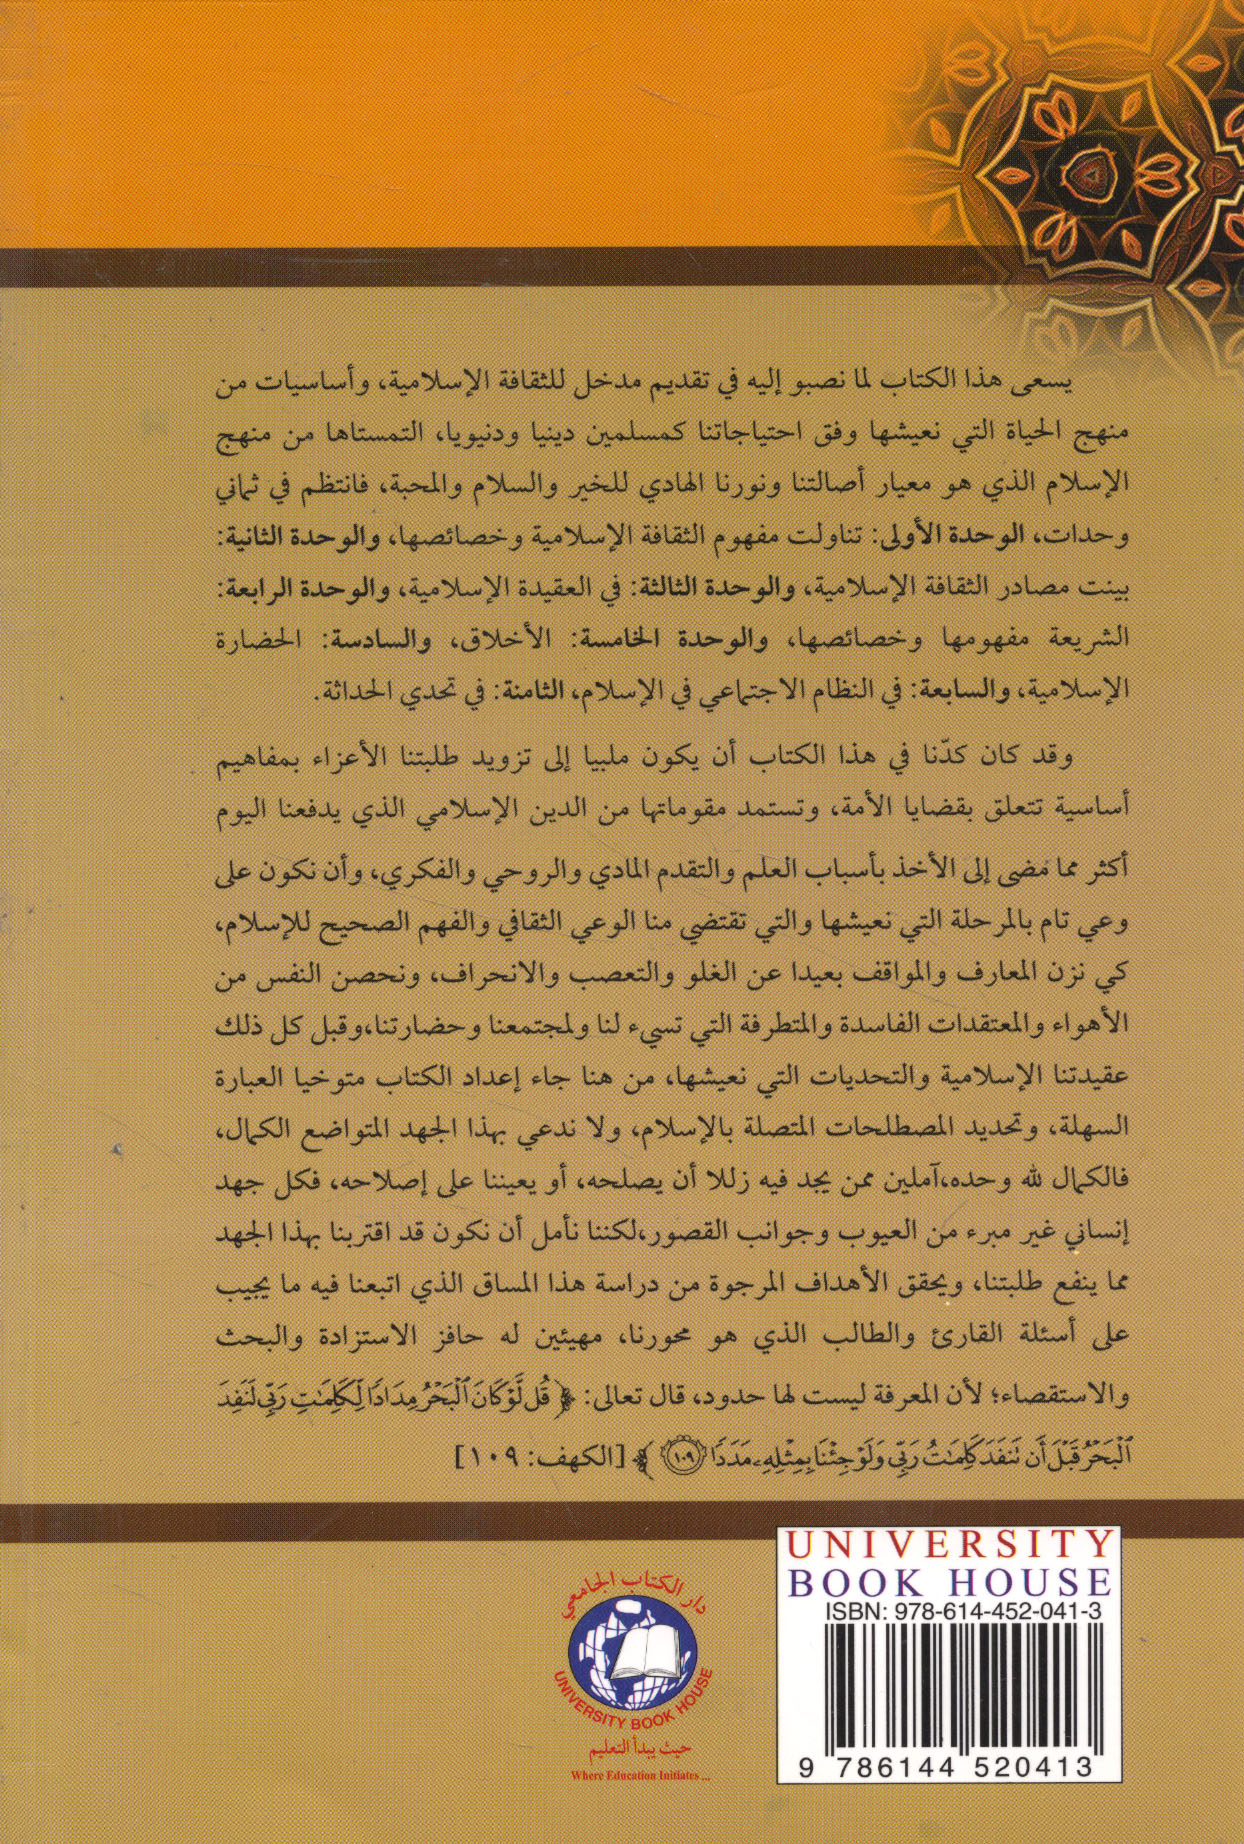 يسعى هذا الكتاب لما نصبو إليه في تقديم مدخل للثقافة الإسلامية، وأساسيات من
منهج الحياة التي نعيشها وفق احتياجاتنا كمسلمين دينيا ودنيويا، التمستاها من منهج
الإسلام الذي هو معيار أصالتنا ونورنا الهادي للخير والسلام والمحبة، فانتظم في ثماني
وحدات، الوحدة الأولى: تناولت مفهوم الثقافة الإسلامية وخصائصها، والوحدة الثانية:
بينت مصادر الثقافة الإسلامية، والوحدة الثالثة: في العقيدة الإسلامية، والوحدة الرابعة:
الشريعة مفهومها وخصائصها، والوحدة الخامسة: الأخلاق، والسادسة: الحضارة
الإسلامية، والسابعة: في النظام الاجتماعي في الإسلام، الثامنة: في تحدي الحداثة.
وقد كان كدّنا في هذا الكتاب أن يكون ملبيا إلى تزويد طلبتنا الأعزاء بمفاهيم
أساسية تتعلق بقضايا الأمة، وتستمد مقوماتها من الدين الإسلامي الذي يدفعنا اليوم
أكثر مما مضى إلى الأخذ بأسباب العلم والتقدم المادي والروحي والفكري، وأن نكون على
وعي تام بالمرحلة التي نعيشها والتي تقتضي منا الوعي الثقافي والفهم الصحيح للإسلام،
كي نزن المعارف والمواقف بعيدا عن الغلو والتعصب والانحراف، ونحصن النفس من
الأهواء والمعتقدات الفاسدة والمتطرفة التي تسيء لنا ولمجتمعنا وحضارتنا،وقبل كل ذلك
عقيدتنا الإسلامية والتحديات التي نعيشها، من هنا جاء إعداد الكتاب متوخيا العبارة
السهلة، وتحديد المصطلحات المتصلة بالإسلام، ولا ندعي بهذا الجهد المتواضع الكمال،
فالكمال لله وحده،آملين ممن يجد فيه زللا أن يصلحه، أو يعيننا على إصلاحه، فكل جهد
إنساني غير مبرء من العيوب وجوانب القصور،لكننا نأمل أن نكون قد اقتربنا بهذا الجهد
مما ينفع طلبتنا، ويحقق الأهداف المرجوة من دراسة هذا المساق الذي اتبعنا فيه ما يجيب
على أسئلة القارئ والطالب الذي هو محورنا، مهيئين له حافز الاستزادة والبحث
والاستقصاء؛ لأن المعرفة ليست لها حدود، قال تعالى: ﴿ قُل لَّوْ كَانَ ٱلْبَحْرُ مِدَادًا لِّكَلِمَٰتِ رَبِّى لَنَفِدَ
ٱلْبَحْرُ قَبْلَ أَن تَنفَدَ كَلِمَٰتُ رَبِّى وَلَوْ جِئْنَا بِمِثْلِهِۦ مَدَدًا ١٠٩ ﴾ [الكهف: ١٠٩]
UNIVERSITY
BOOK HOUSE
ISBN: 978-614-452-041-3
9 786144 520413
دار الكتاب الجامعي
UNIVERSITY BOOK HOUSE
حيث يبدأ التعليم
Where Education Initiates ...